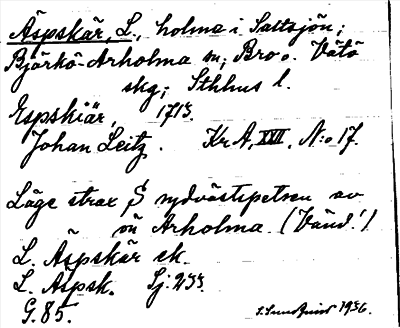 Äspskär, L., holme i Saltsjön;
Björkö-Arholma sn; Bro o. Vätö
skg; Sthlms l.
Espskiär, 1713.
Johan Leitz. KrA, XVII, N:o 17.
Läge strax S sydvästspetsen av
ön Arholma. (Vänd!)
L. Äspskär ek.
L. Äspsk. Sj. 233.
G. 85. 1936.